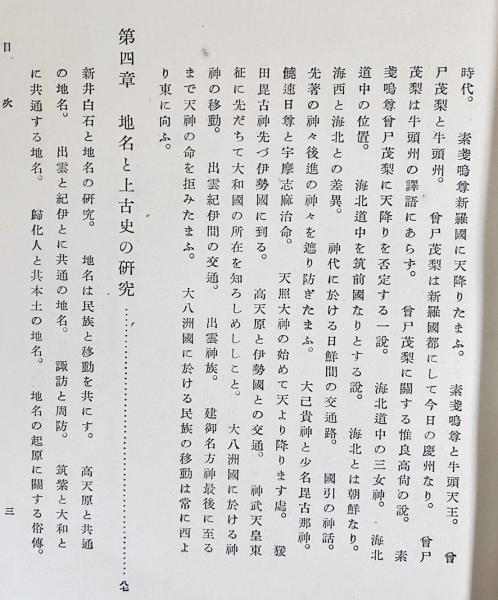 時代。　素戔嗚尊新羅國に天降りたまふ。　素戔嗚尊と牛頭天王。　曾
尸茂梨と牛頭州。　曾尸茂梨は新羅國都にして今日の慶州なり。　曾尸
茂梨は牛頭州の譯語にあらず。　曾尸茂梨に關する惟良高尙の說。　素
戔嗚尊曾尸茂梨に天降りを否定する一說。　海北道中の三女神。　海北
道中の位置。　海北道中を筑前國なりとする說。　海北とは朝鮮なり。
海西と海北との差異。　神代に於ける日鮮間の交通路。　國引の神話。
先著の神々後進の神々を遮り防ぎたまふ。　大己貴神と少名毘古那神。
饒速日尊と宇摩志麻治命。　天照大神の始めて天より降ります處。　猨
田毘古神先づ伊勢國に到る。　高天原と伊勢國との交通。　神武天皇東
征に先だちて大和國の所在を知ろしめししこと。　大八洲國に於ける神
神の移動。　出雲紀伊間の交通。　出雲神族。　建御名方神最後に至る
まで天神の命を拒みたまふ。　大八洲國に於ける民族の移動は常に西よ
り東に向ふ。
第四章　地名と上古史の硏究……………………………………八七
新井白石と地名の硏究。　地名は民族と移動を共にす。　高天原と共通
の地名。　出雲と紀伊とに共通の地名。　諏訪と周防。　筑紫と大和と
に共通する地名。　歸化人と其本土の地名。　地名の起原に關する俗傳。
目次　三